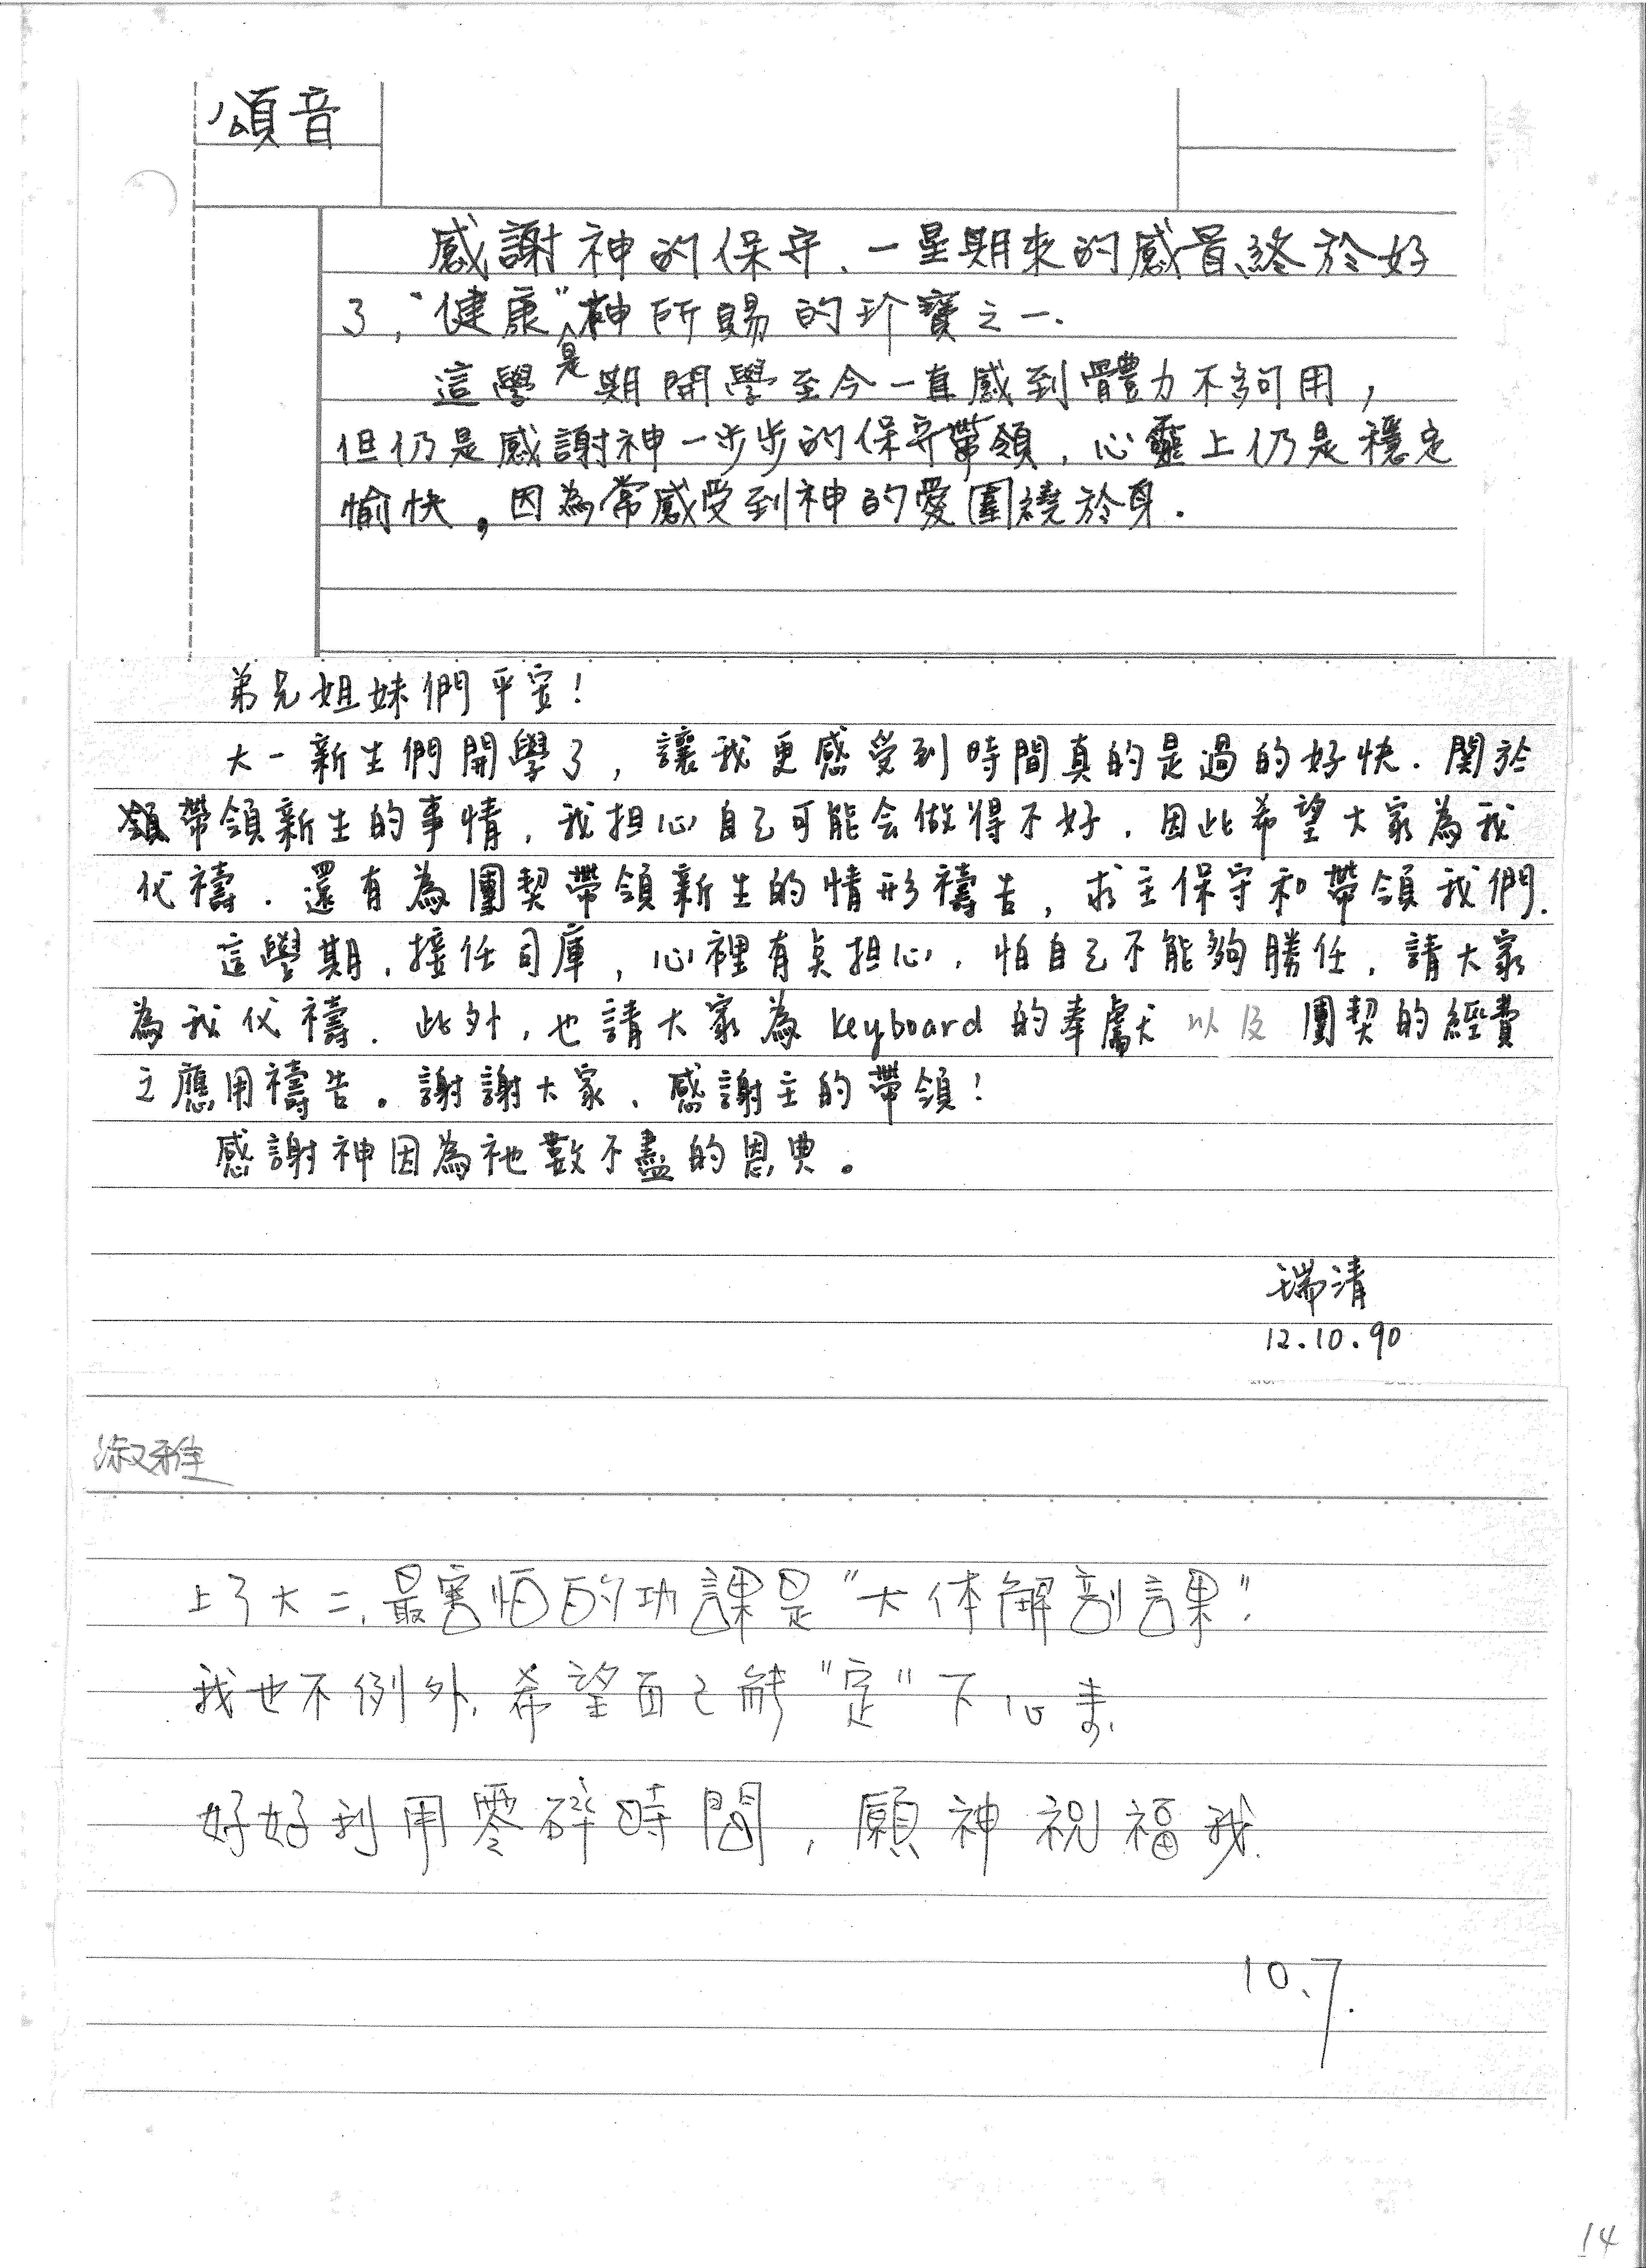 頌音
感謝神的保守、一星期來的感冒終於好
了，"健康"是神所賜的珍寶之一.
這學期開學至今一直感到體力不夠用，
但仍是感謝神一步步的保守帶領，心靈上仍是穩定
愉快，因為常感受到神的愛圍繞於身.
弟兄姐妹們平安！
大一新生們開學了，讓我更感受到時間真的是過的好快．関於
帶領新生的事情，我担心自己可能会做得不好．因此希望大家為我
代禱．還有為團契帶領新生的情形禱告，求主保守和帶領我們．
這學期，接任司庫，心裡有点担心，怕自己不能夠勝任，請大家
為我代禱．此外，也請大家為 keyboard 的奉獻以及團契的經費
之應用禱告。謝謝大家、感謝主的帶領！
感謝神因為祂數不盡的恩典。
瑞清
12.10.90
淑雅
上了大二，最害怕的功課是"大体解剖課"！
我也不例外，希望自己能"定"下心來，
好好利用零碎時間，願神祝福我．
10.7.
14